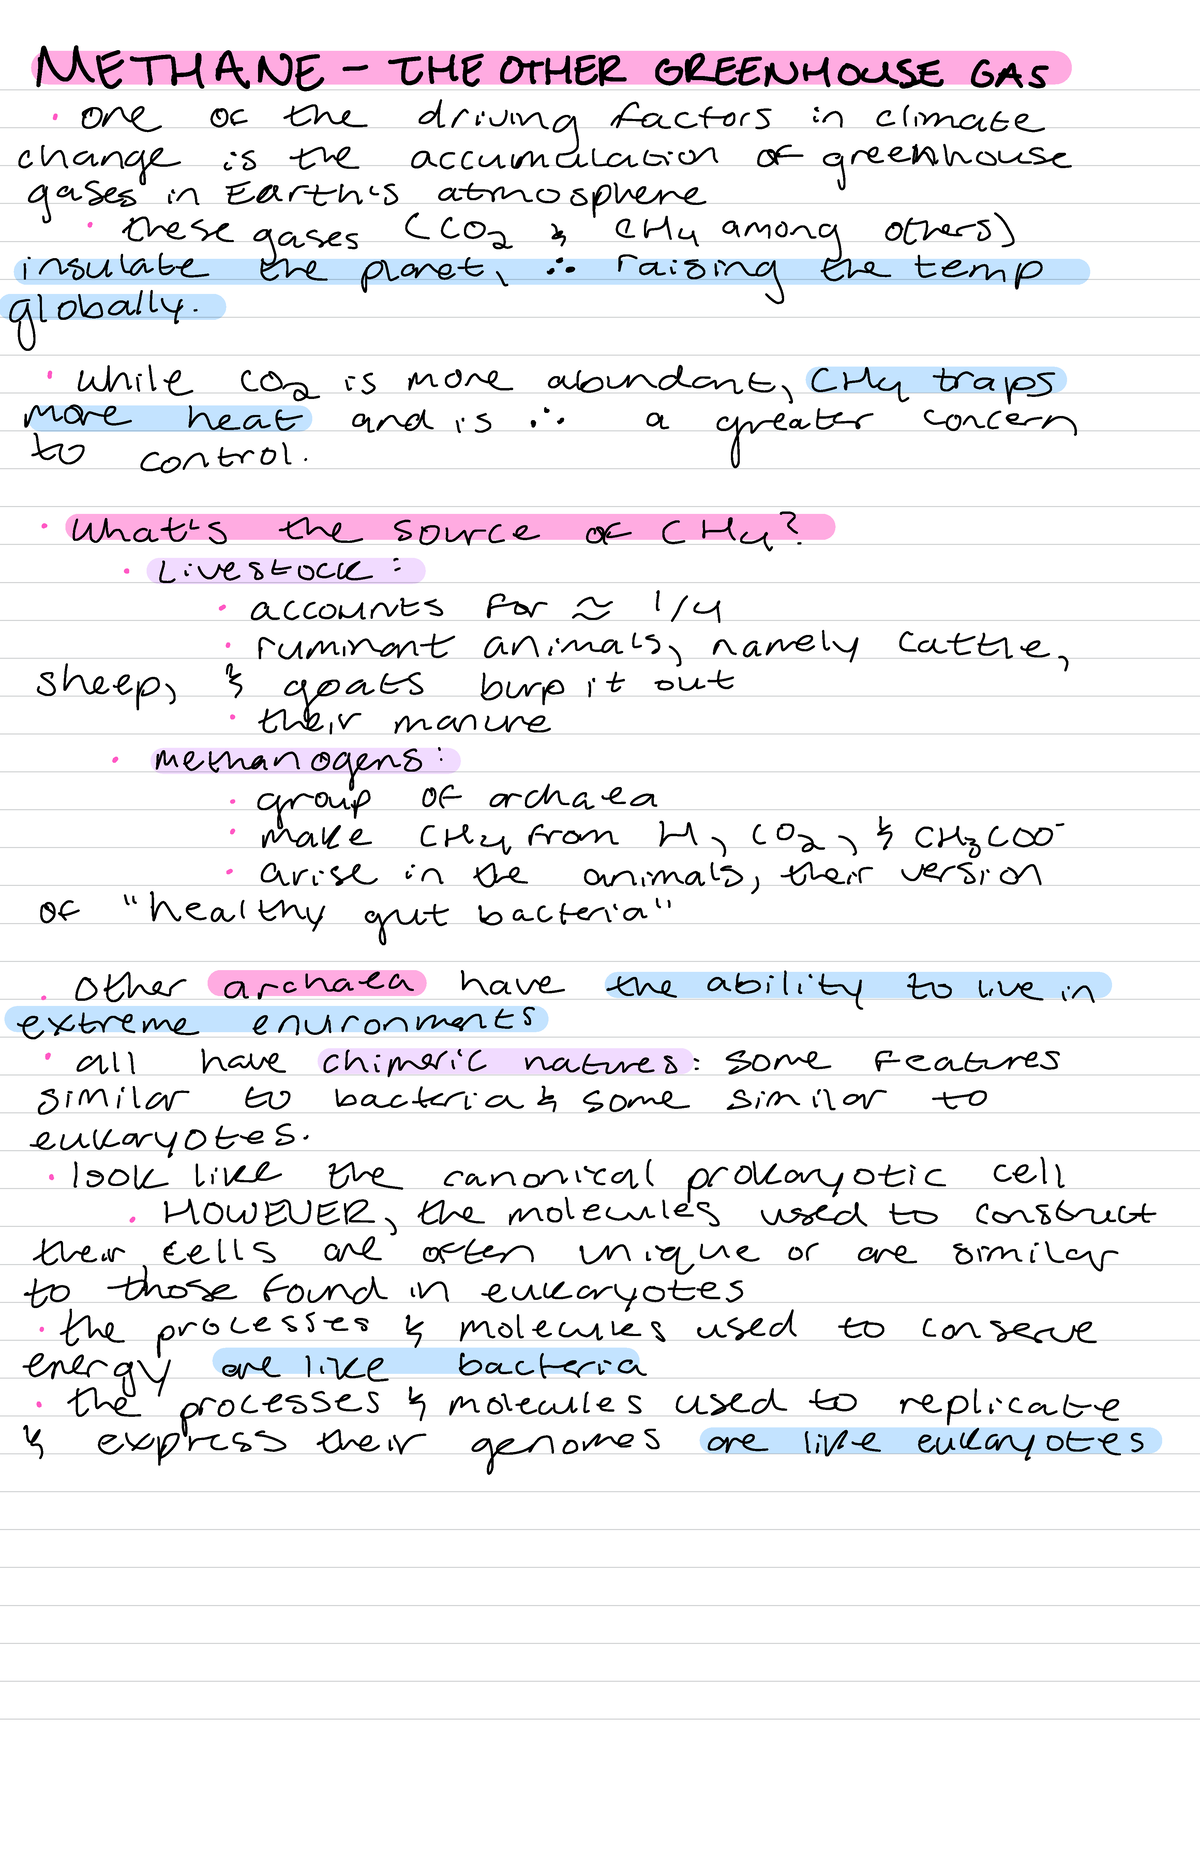 METHANE - THE OTHER GREENHOUSE GAS
• one of the driving factors in climate
change is the accumulation of greenhouse
gases in Earth's atmosphere
• these gases (CO₂ & CH₄ among others)
insulate the planet, ∴ raising the temp
globally.
• while CO₂ is more abundant, CH₄ traps
more heat and is ∴ a greater concern
to control.
• What's the source of CH₄?
• Livestock:
• accounts for ≈ 1/4
• ruminant animals, namely cattle,
sheep, & goats burp it out
• their manure
• methanogens:
• group of archaea
• make CH₄ from H, CO₂, & CH₃COO⁻
• arise in the animals, their version
of "healthy gut bacteria"
• Other archaea have the ability to live in
extreme environments
• all have chimeric natures: some features
similar to bacteria & some similar to
eukaryotes.
• look like the canonical prokaryotic cell
• HOWEVER, the molecules used to construct
their cells are often unique or are similar
to those found in eukaryotes
• the processes & molecules used to conserve
energy are like bacteria
• the processes & molecules used to replicate
& express their genomes are like eukaryotes